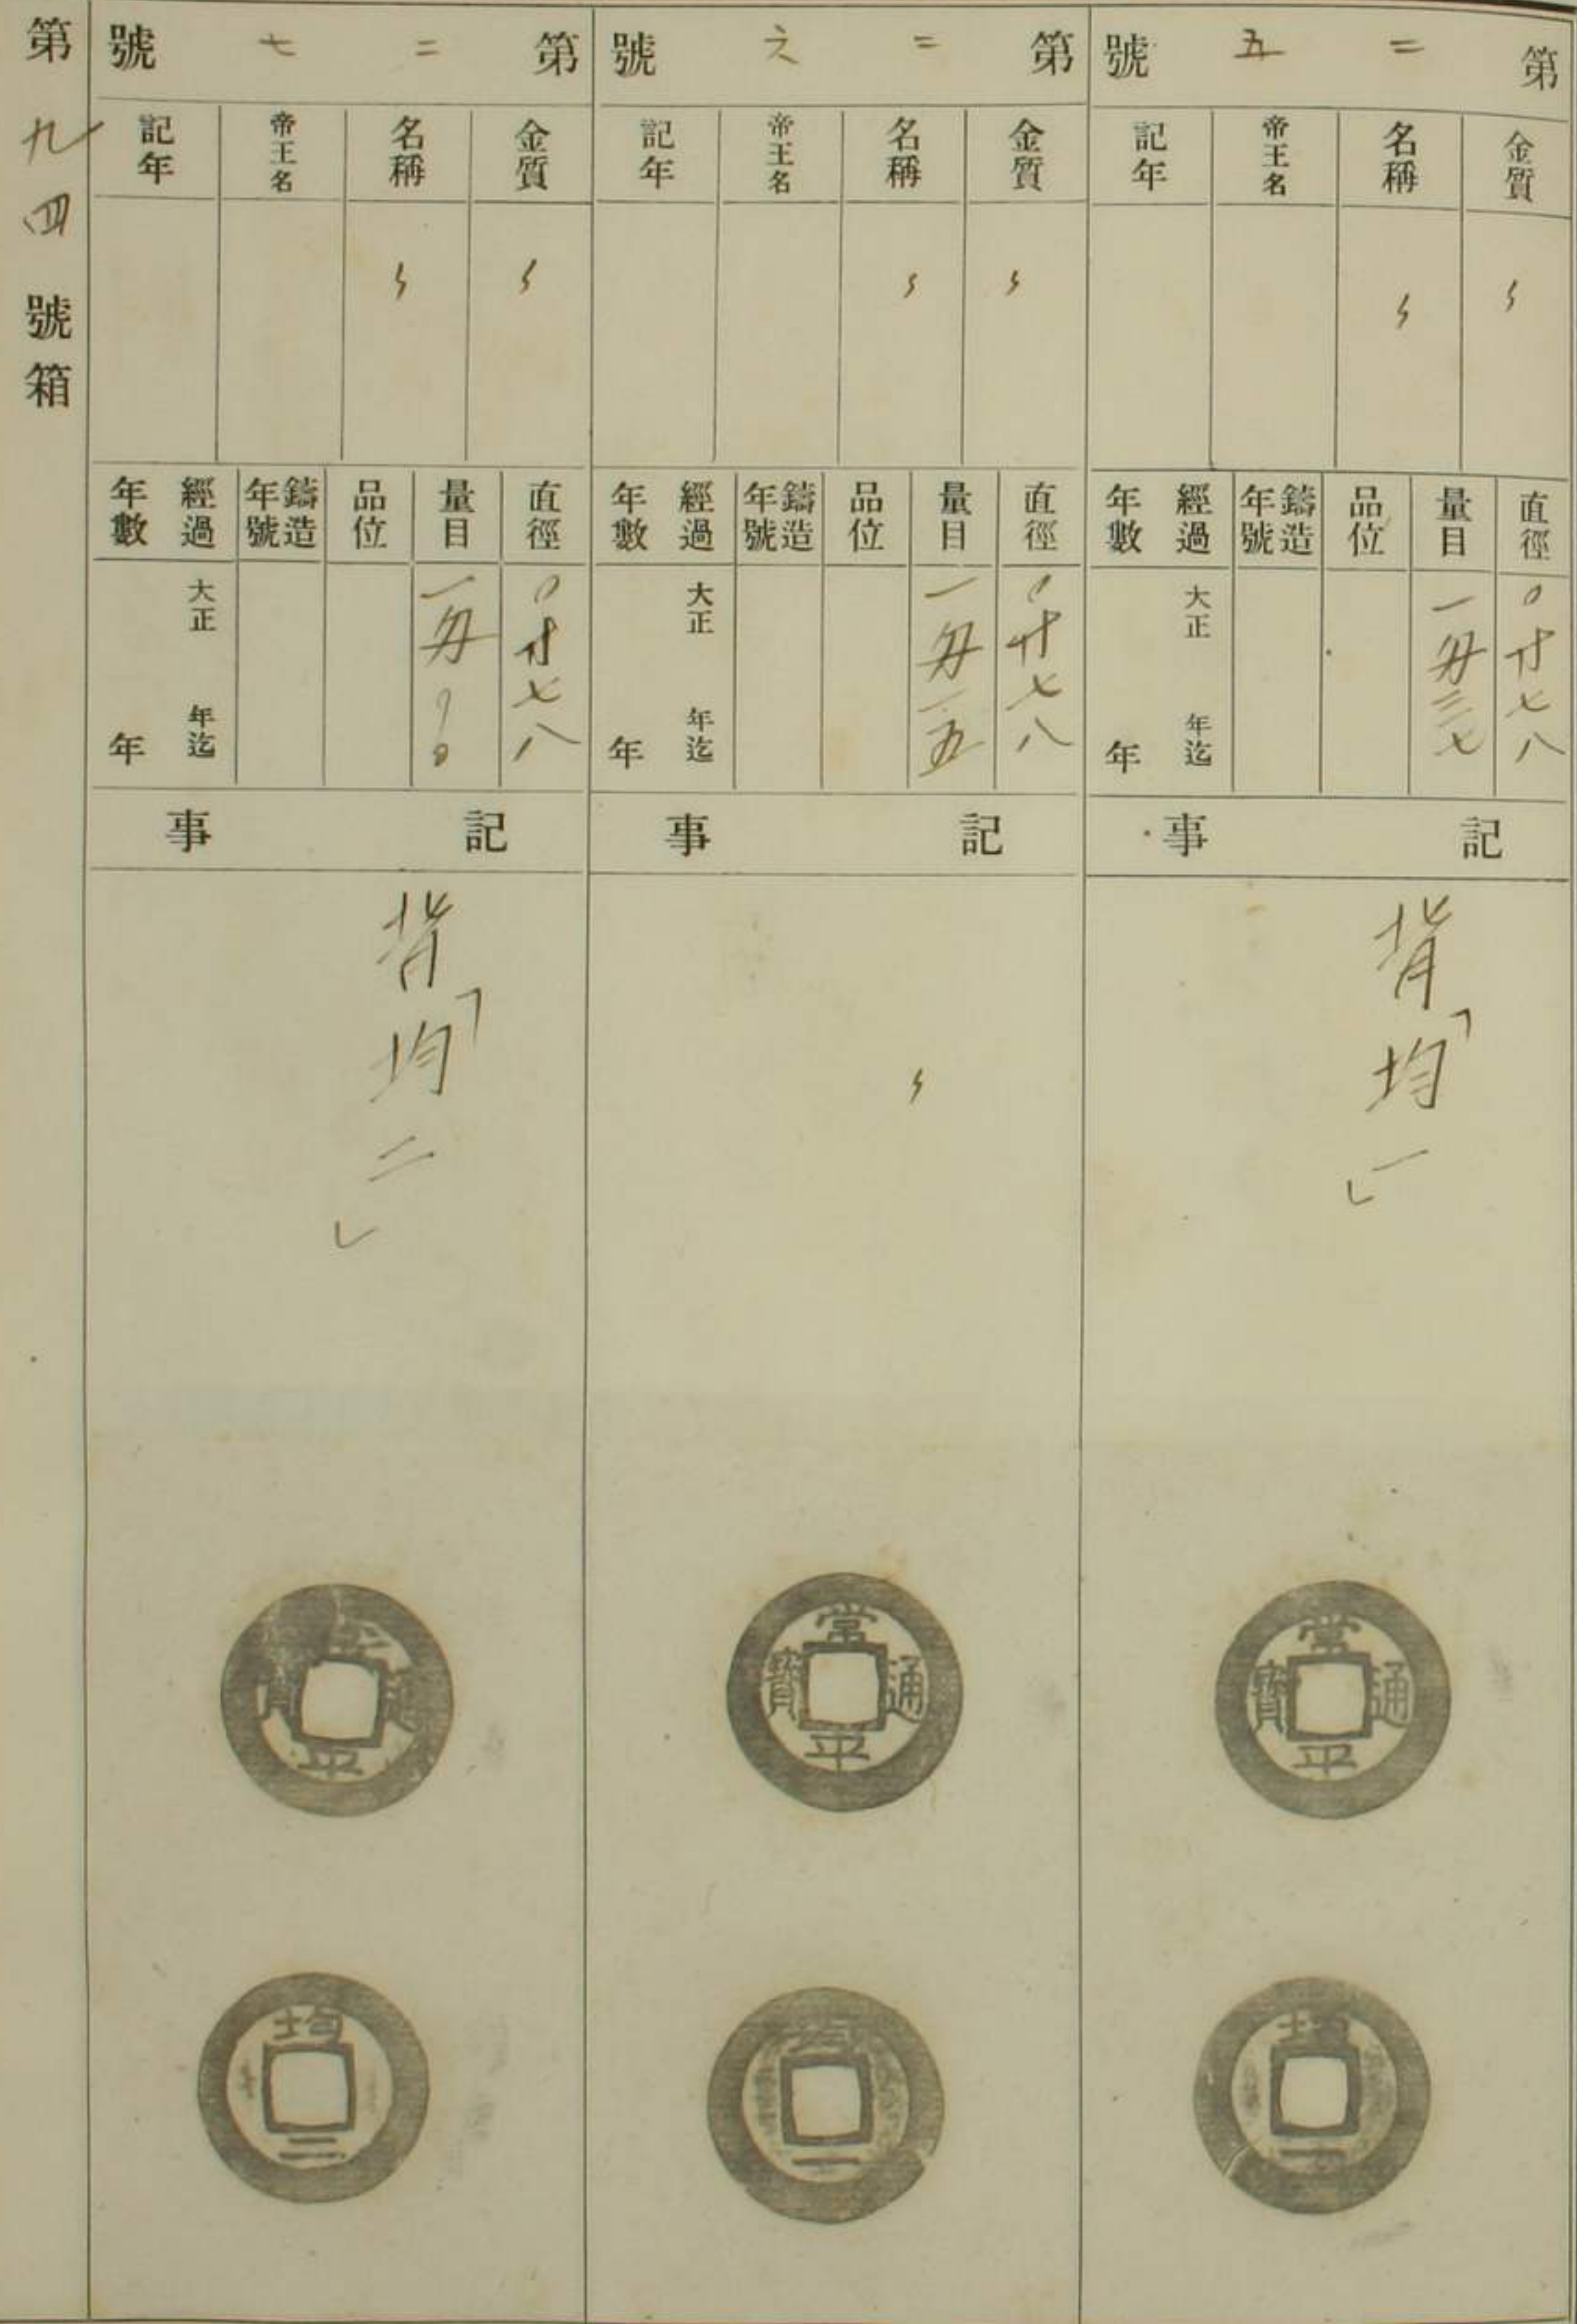 第二五號
金質
名稱
帝王名
記年
〻
〻
直徑
量目
品位
鑄造年號
經過年數
〇寸七八
一匁三七
大正 年迄
年
記事
背「均一」
常平通寶
均
一
第二六號
金質
名稱
帝王名
記年
〻
〻
直徑
量目
品位
鑄造年號
經過年數
〇寸七八
一匁一五
大正 年迄
年
記事
〻
常平通寶
均
一
第二七號
金質
名稱
帝王名
記年
〻
〻
直徑
量目
品位
鑄造年號
經過年數
〇寸七八
一匁〇〇
大正 年迄
年
記事
背「均二」
平通寶
均
二
第九四號箱